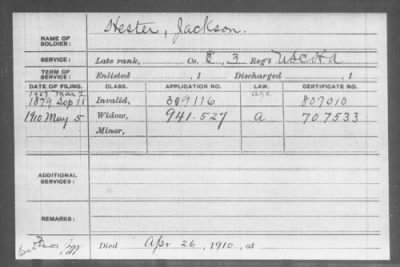 NAME OF SOLDIER: Hester, Jackson.
SERVICE: Late rank, Co. E, 3 Reg't U S C H A
TERM OF SERVICE: Enlisted , 1 Discharged , 1
DATE OF FILING. CLASS. APPLICATION NO. LAW. CERTIFICATE NO.
1907 Mar 2 age
1879 Sep 11 Invalid, 309116 807010
1910 May 5 Widow, 941.527 a 707533
Minor,
ADDITIONAL SERVICES:
REMARKS:
Died Apr 26, 1910, at